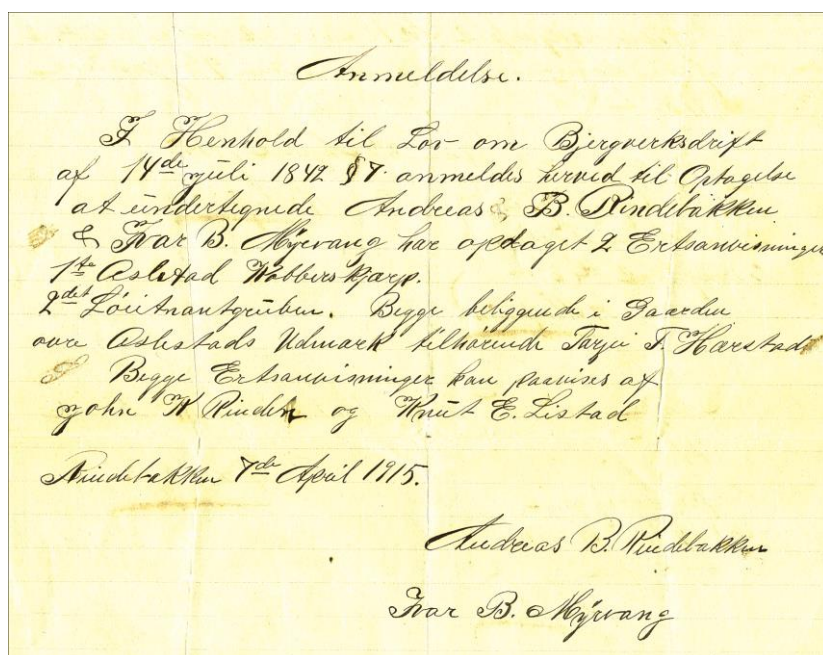 Anmeldelse.
I Henhold til Lov om Bjergverksdrift
af 14de juli 1842 § 7. anmeldes herved til Optagelse
at undertegnede Andreas B. Rindebakken
& Ivar B. Myrvang har opdaget 2 Ertsanvisninger
1ste Aslestad Kobberskjærp.
2det Løitnantgruben. Begge beliggende i Gaarden
øvre Aslestads Udmark tilhørende Tarjei T. Harstad
Begge Ertsanvisninger kan paavises af
John K Rinden og Knut E. Listad
Rindebakken 7de April 1915.
Andreas B. Rindebakken
Ivar B. Myrvang